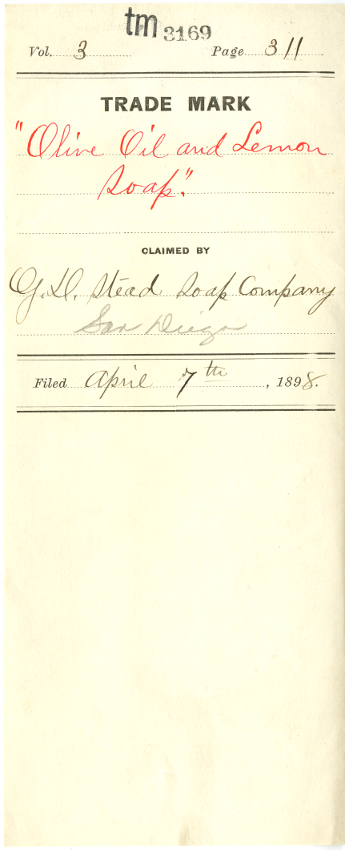 tm 3169
Vol. 3 Page 311
TRADE MARK
"Olive Oil and Lemon
Soap".
CLAIMED BY
G. D. Stead Soap Company
San Diego
Filed April 7th, 1898.